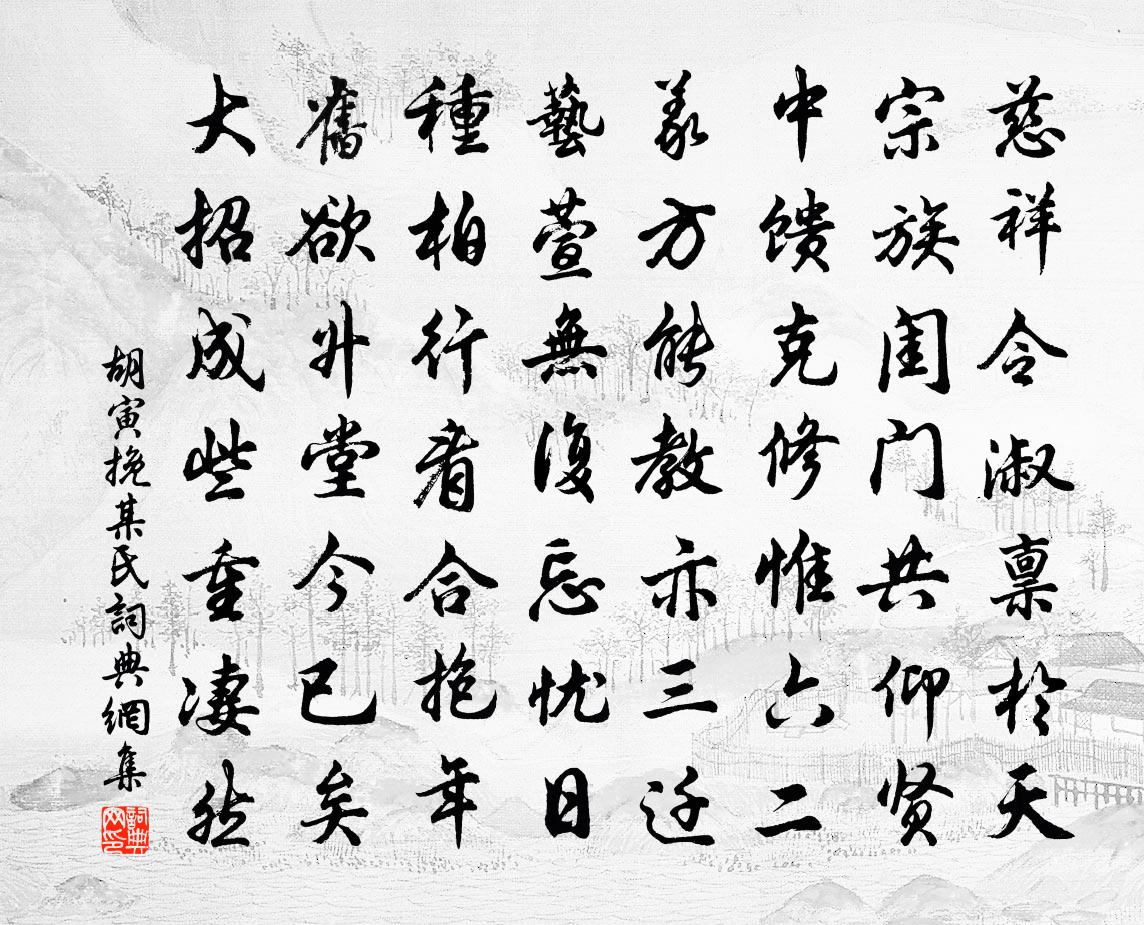 慈祥令淑禀於天
宗族闺门共仰贤
中馈克修惟六二
义方能教亦三迁
藝萱無復忘忧日
種柏行看合抱年
舊欲升堂今已矣
大招成些重凄然
胡寅挽某氏詞典網集
詞典網印